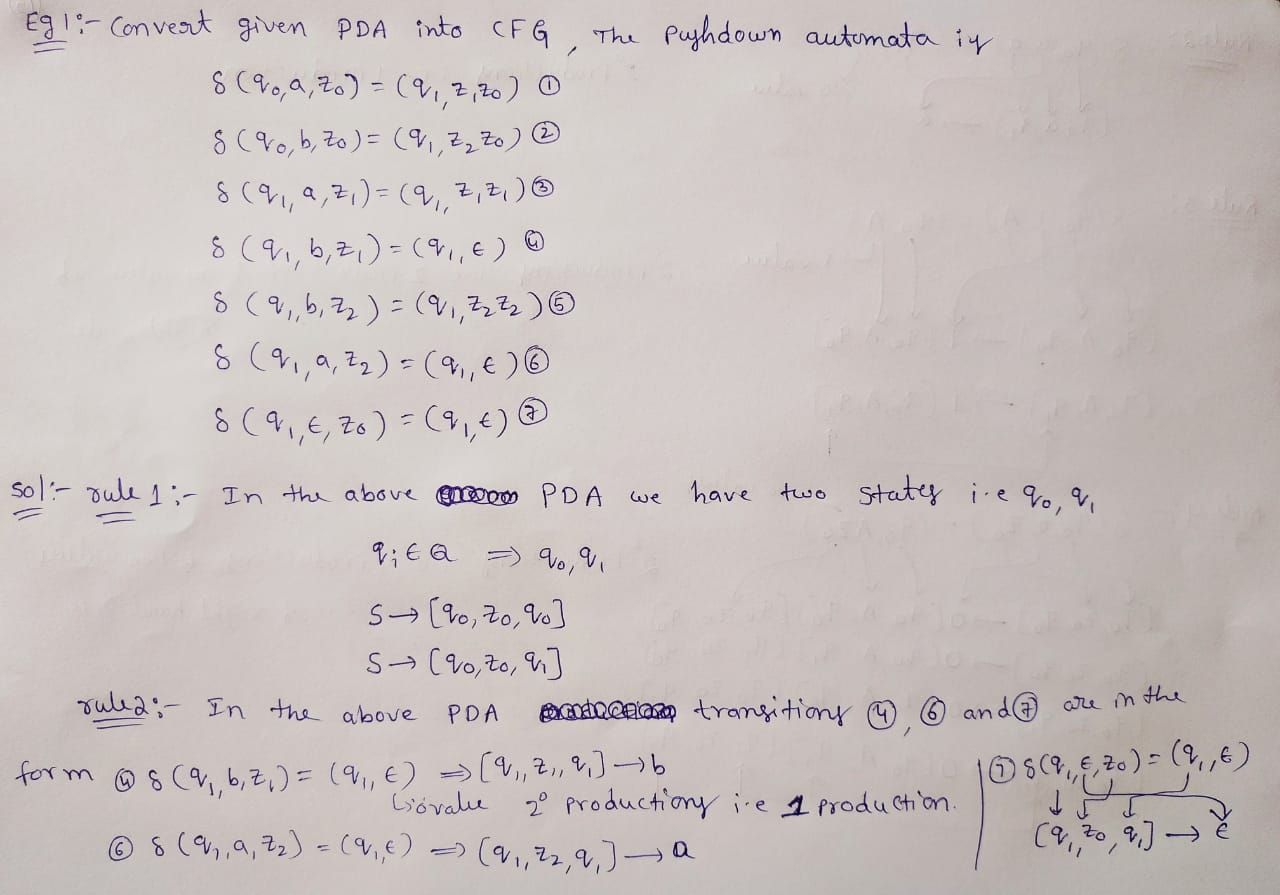 Eg 1:- Convert given PDA into CFG, The Pushdown automata is
δ(q₀,a,z₀) = (q₁,z₁z₀) ①
δ(q₀,b,z₀) = (q₁,z₂z₀) ②
δ(q₁,a,z₁) = (q₁,z₁z₁) ③
δ(q₁,b,z₁) = (q₁,ε) ④
δ(q₁,b,z₂) = (q₁,z₂z₂) ⑤
δ(q₁,a,z₂) = (q₁,ε) ⑥
δ(q₁,ε,z₀) = (q₁,ε) ⑦
Sol:- rule 1:- In the above PDA we have two states i.e q₀, q₁
qᵢ ∈ Q ⇒ q₀, q₁
S → [q₀, z₀, q₀]
S → [q₀, z₀, q₁]
rule2:- In the above PDA transitions ④, ⑥ and ⑦ are in the
form ④ δ(q₁,b,z₁) = (q₁,ε) ⇒ [q₁,z₁,q₁] → b
value 2⁰ productions i.e 1 production.
⑥ δ(q₁,a,z₂) = (q₁,ε) ⇒ [q₁,z₂,q₁] → a
⑦ δ(q₁,ε,z₀) = (q₁,ε)
[q₁,z₀,q₁] → ε